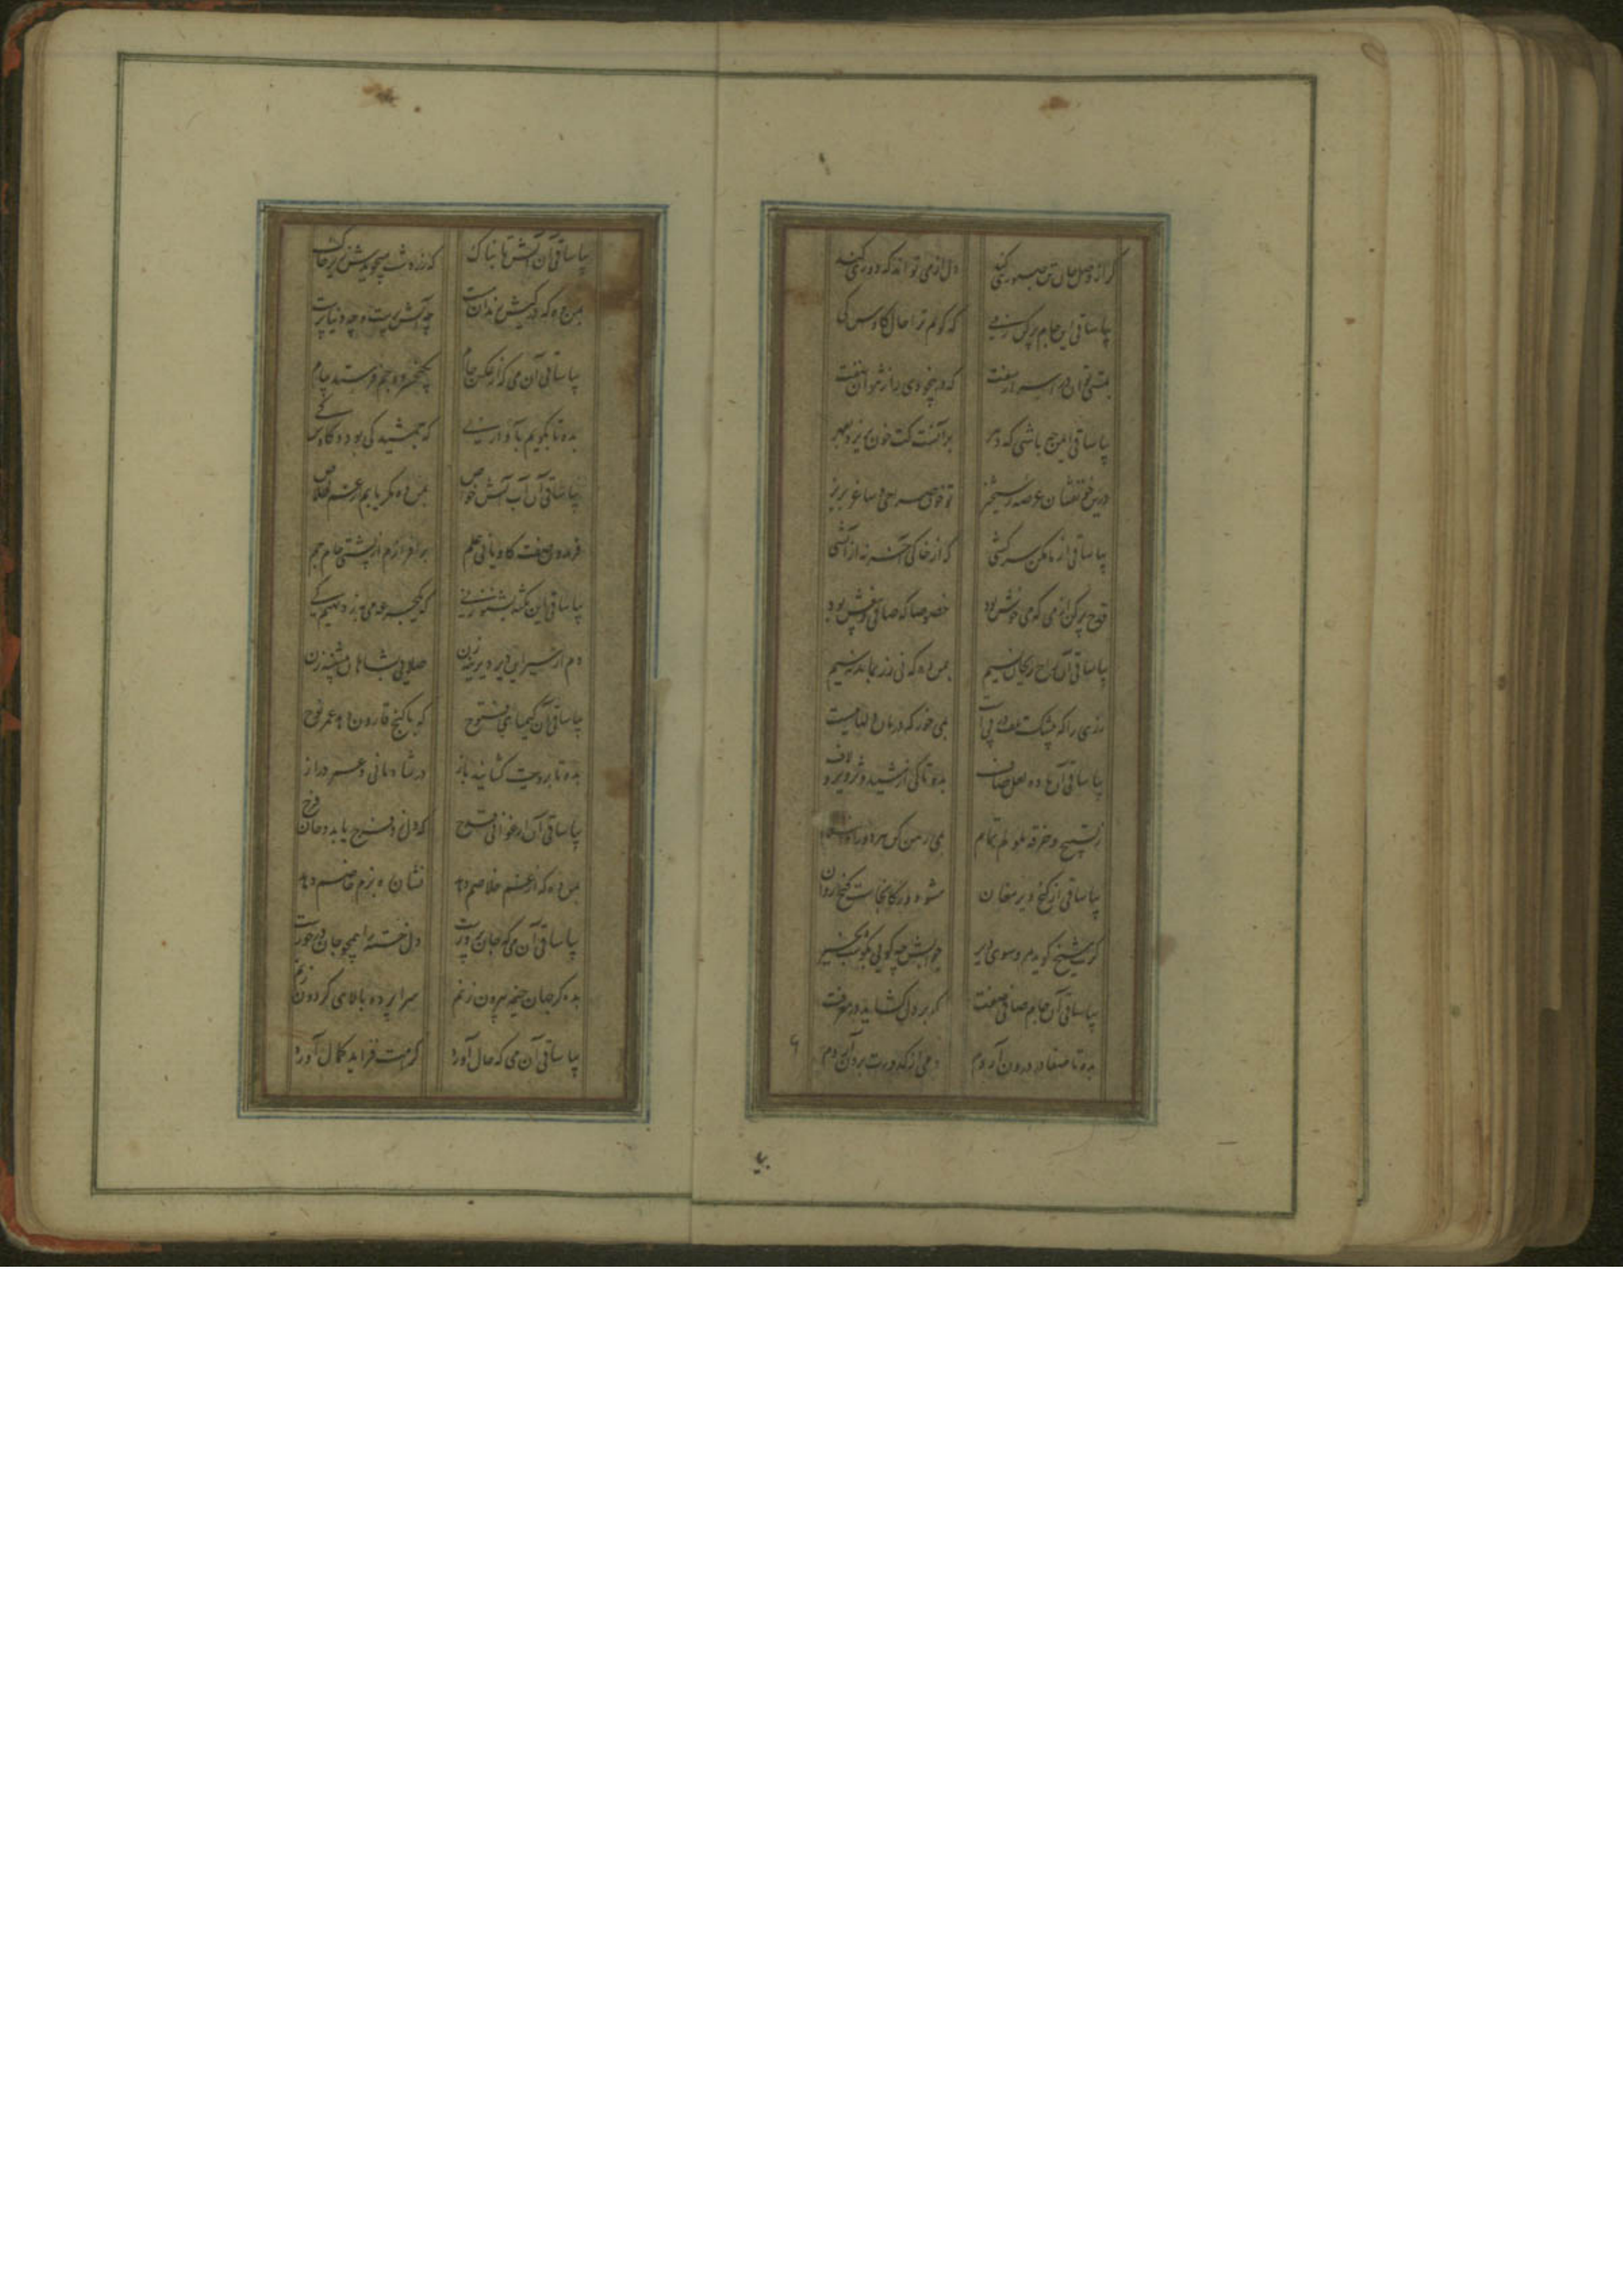 گر از وصل جان تن صبوری کند دل از می تواند که دوری کند
بیا ساقی این جام پر کن ز می که گویم ترا حال کاوس کی
بمستی توان در اسرار سفت که در بیخودی راز نتوان نهفت
بیا ساقی ایمن چه باشی که دهر برآنست کت خون بریزد بقهر
درین خونفشان عرصه رستخیز تو خون صراحی و ساغر بریز
بیا ساقی از ما مکن سرکشی که از خاکی آخر نه از آتشی
قدح پر کن از می که می خوش بود خصوصا که صافی و بیغش بود
بیا ساقی آن راح ریحان نسیم بمن ده که نی زر بماند نه سیم
زری را که بیشک تلف در پی است بمی خور که درمان دلها میست
بیا ساقی آن باده لعل صاف بده تا کی از شید و تزویر و لاف
ز تسبیح و خرقه ملولم تمام بمی رهن کن هر دو را والسلام
بیا ساقی از کنج دیر مغان مشو دور کانجاست گنج روان
گرت شیخ گوید مرو سوی دیر جوابش چه گویی بگو شب بخیر
بیا ساقی آن جام صافی صفت که بر دل گشاید در معرفت
بده تا صفا در درون آردم دمی از کدورت برون آردم
بیا
بیا ساقی آن آتش تابناک که زردشت میجویدش زیر خاک
بمن ده که در کیش رندان مست چه آتش پرست و چه دنیا پرست
بیا ساقی آن می که از عکس جام بکیخسرو و جم فرستد پیام
بده تا بگویم بآواز نی که جمشید کی بود و کاوس کی
بیا ساقی آن آب آتش خواص بمن ده مگر یابم از غم خلاص
فریدون صفت کاویانی علم برافرازم از پشتی جام جم
بیا ساقی این نکته بشنو ز نی که یک جرعه می به ز دیهیم کی
دم از سیر این دیر دیرینه زن صلایی بشاهان پیشینه زن
بیا ساقی آن کیمیای فتوح که با گنج قارون دهد عمر نوح
بده تا برویت گشایند باز در شادمانی و عمر دراز
بیا ساقی آن ارغوانی قدح که دل زو فرح یابد و جان فرح
بمن ده که از غم خلاصم دهد نشان ره بزم خاصم دهد
بیا ساقی آن می که جان پرورست دل خسته را همچو جان درخورست
بده کز جهان خیمه بیرون زنم سراپرده بالای گردون زنم
بیا ساقی آن می که حال آورد کرامت فزاید کمال آورد